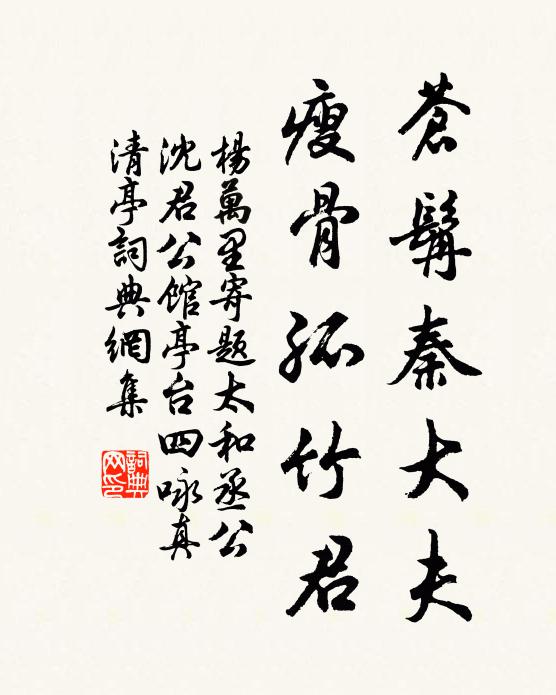 蒼髯秦大夫
瘦骨孤竹君
楊萬里寄題太和丞公
沈君公館亭台四咏真
清亭詞典網集
詞典网印